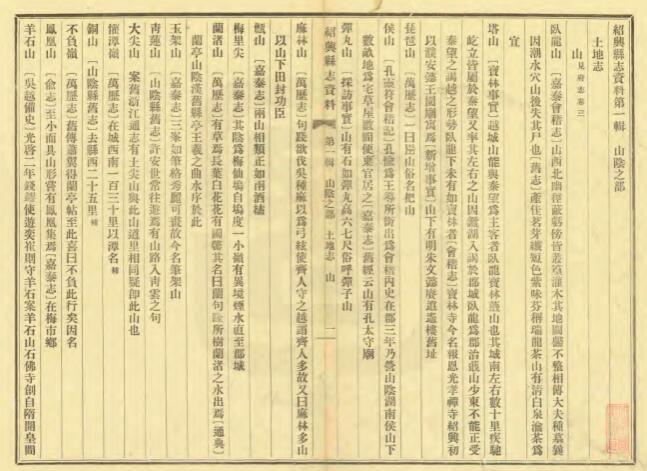 紹興縣志資料第一輯　山陰之部
土地志
山 見府志卷三
臥龍山　〔嘉泰會稽志〕山西北幽徑蔽虧傍皆叢篁灌木其地不整相傳大夫種墓
因潮水穴山後失其尸也〔舊志〕產佳茗芽纖短色紫味芬稱瑞龍茶山有清白泉瀹茶爲
宜
塔山　〔寶林事實〕越城山能與秦望爲主客者臥龍寶林蕺山也其城南左右數十里疾馳
屹立皆於秦望又率其左右之山因鑑湖入謁於郡城臥龍爲郡治蕺山少東不能正受
秦望之謁越之形勢臥龍下未有如寶林者〔會稽志〕寶林寺今名報恩光孝禪寺紹興初
以濮安懿王園廟寓焉〔新增事實〕山下有明朱文懿賡逍遙樓舊址
琵琶山　〔萬歷志〕一曰巫山俗名把山
侯山　〔孔靈符會稽記〕孔愉爲王導所斥出爲會稽內史在郡三年乃營山陰湖南侯山下
數畝地爲宅草屋數間便棄官居之〔嘉泰志〕舊經云山有孔太守廟
彈丸山　〔採訪事實〕山有石如彈丸高六七尺俗呼彈子山
紹興縣志資料　第一輯　山陰之部　土地志　山　一
麻林山　〔萬歷志〕句踐欲伐吳種麻以爲弓絃使齊人守之越謂齊人多故又曰麻林多山
以山下田封功臣
甑山　〔嘉泰志〕兩山相類正如兩酒
梅里尖　〔嘉泰志〕其陰爲梅仙塢自塢度一小嶺有異境煙水直至郡城
蘭渚山　〔嘉泰志〕有草焉長葉白花花有國馨其名曰蘭句踐所樹蘭渚之水出焉〔通典〕
蘭亭山陰漢舊縣亭王羲之曲水序於此
玉架山　〔嘉泰志〕三峯如筆格秀麗可畫故今名筆架山
靑蓮山　〔山陰縣舊志〕許安世常往遊焉有山路入靑雲之句
大尖山　案舊浙江通志有土尖山與此山道里相同疑即此山也
潭嶺　〔萬歷志〕在城西南一百三十里以潭名
銅山　〔山陰縣舊志〕去縣西二十五里
不負嶺　〔萬歷志〕舊傳蕭翼得蘭亭帖至此喜曰不負此行矣因名
鳳凰山　〔俞志〕至小而具山形嘗有鳳凰集焉〔嘉泰志〕在梅市鄉
羊石山　〔吳越備史〕光啓二年錢鏐使遊奕崔則守羊石案羊石山石佛寺創自隋開皇間